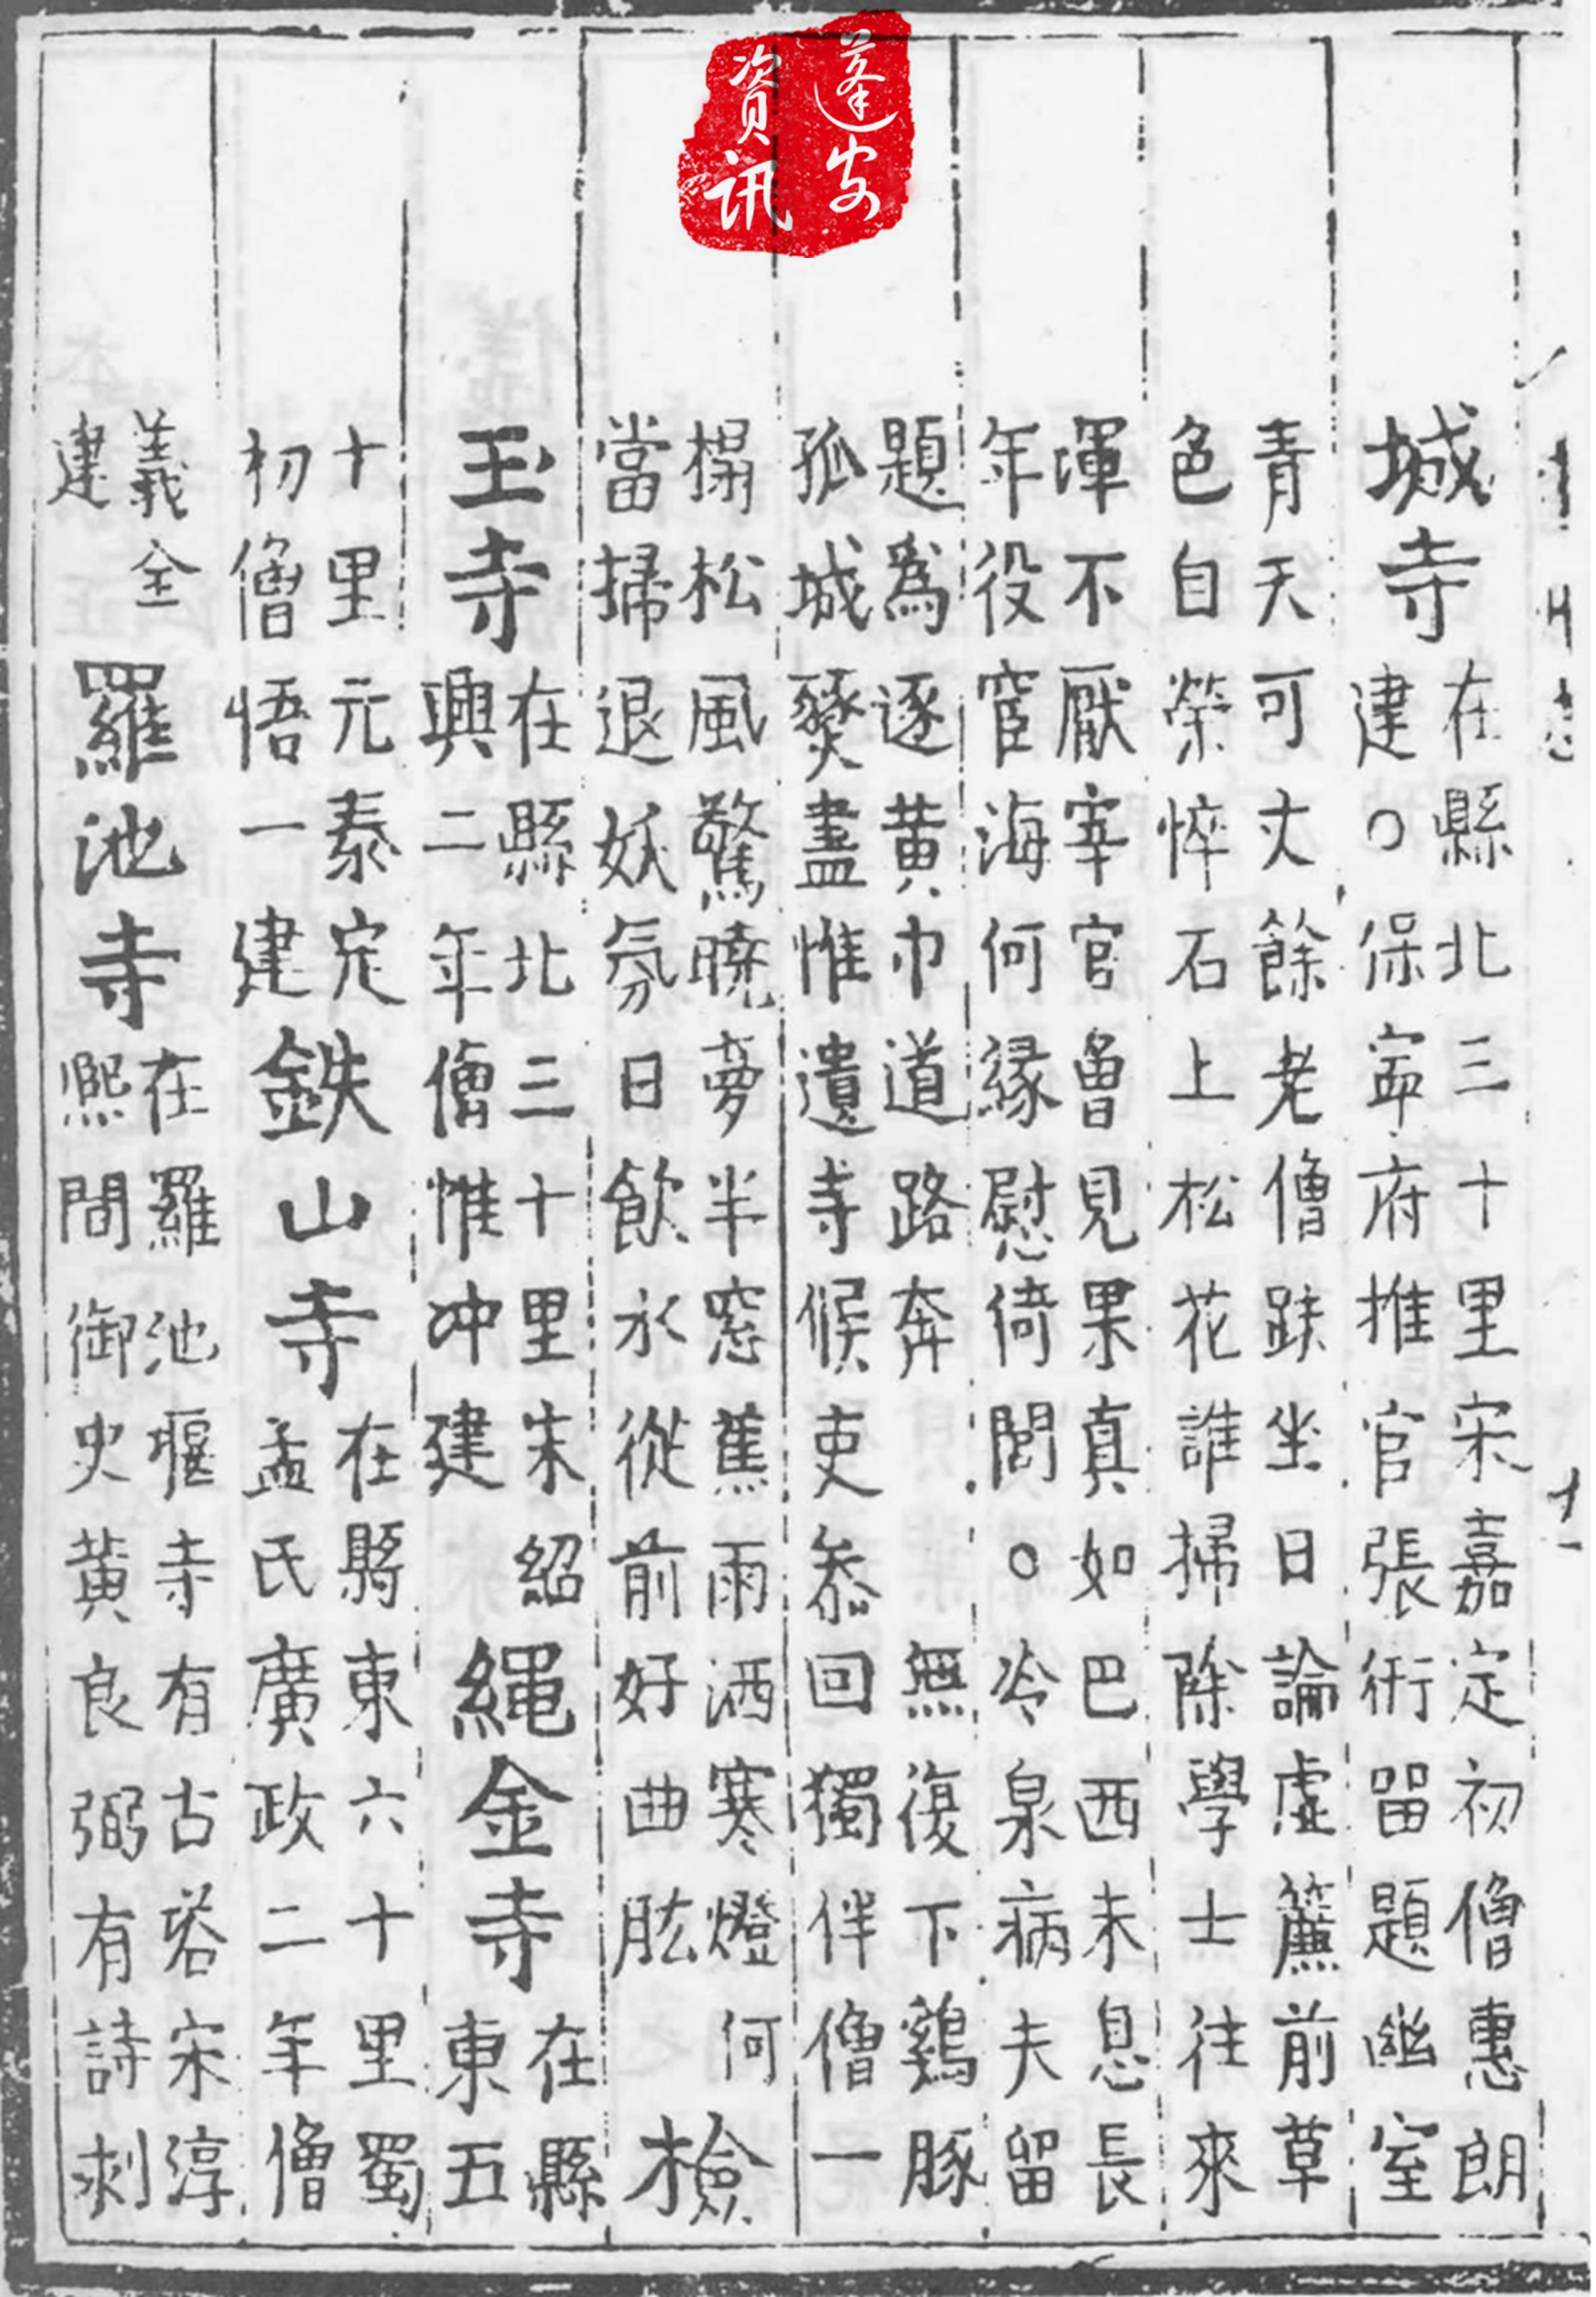 城寺
在縣北三十里宋嘉定初僧惠朗
建○保寧府推官張衍留題幽室
青天可丈餘老僧趺坐日論虛簾前草
色自榮悴石上松花誰掃除學士往來
渾不厭宰官曾見果真如巴西未息長
年役宦海何緣慰倚閭○冷泉病夫留
題爲逐黄巾道路奔 無復下鷄豚
孤城燹盡惟遺寺候吏叅回獨伴僧一
榻松風驚曉夢半窓蕉雨洒寒燈何
當掃退妖氛日飲水從前好曲肱
檢
玉寺
在縣北三十里宋紹
興二年僧惟冲建
繩金寺
在縣
東五
十里元泰定
初僧悟一建
鉄山寺
在縣東六十里蜀
孟氏廣政二年僧
義全
建
羅池寺
在羅池堰寺有古塔宋淳
熙間御史黄良弼有詩刺
蓬安
资讯